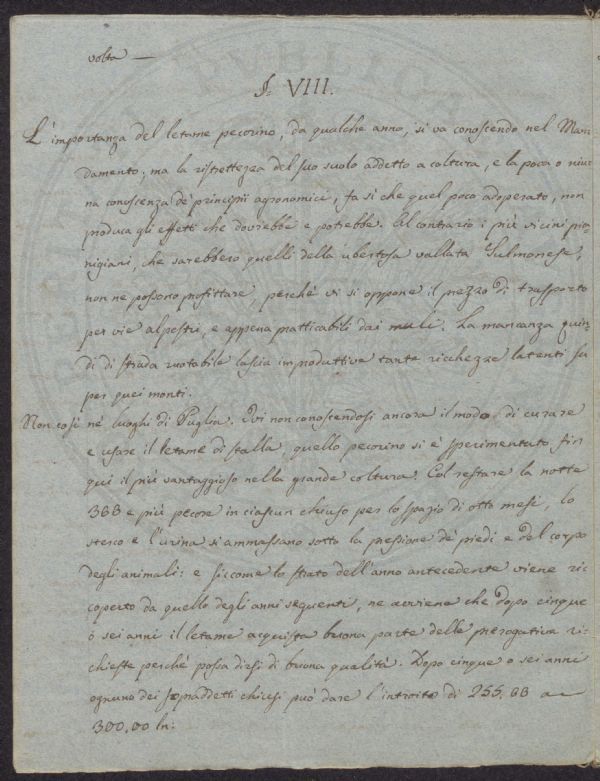 volta —
§. VIII.
L'importanza del letame pecorino, da qualche anno, si va conoscendo nel Man=
damento; ma la ristrettezza del suo suolo addetto a coltura, e la poca o niu=
na conoscenza de' principii agronomici, fa sì che quel poco adoperato, non
produca gli effetti che dovrebbe e potrebbe. Al contrario i più vicini
che sarebbero quelli della ubertosa vallata Sulmonese,
non ne possono profittare, perchè vi si oppone il prezzo di trasporto
per vie alpestri, e appena pratticabili dai muli. La mancanza quin=
di di strada ruotabile lascia improduttive tante ricchezze latenti su
per quei monti.
Non così ne' luoghi di Puglia. Ivi non conoscendosi ancora il modo di curare
e usare il letame di stalla, quello pecorino si è sperimentato fin
qui il più vantaggioso nella grande coltura. Col restare la notte
300 e più pecore in ciascun chiuso per lo spazio di otto mesi, lo
sterco e l'urina si ammassano sotto la pressione de' piedi e del corpo
degli animali: e siccome lo strato dell'anno antecedente viene ri=
coperto da quello degli anni seguenti, ne avviene che dopo cinque
o sei anni il letame acquista buona parte delle prerogative ri=
chieste perchè possa dirsi di buona qualità. Dopo cinque o sei anni
ognuno dei sopraddetti chiusi può dare l'introito di 255.00 a
300.00 ln:
PVBLICA